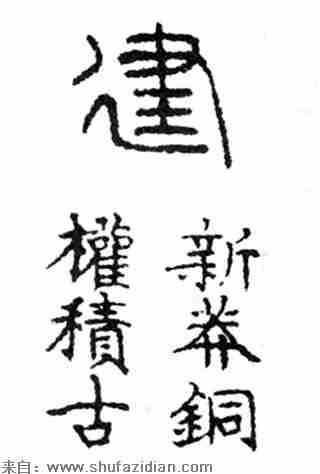 建
新莽銅
權積古
来自：www.shufazidian.com